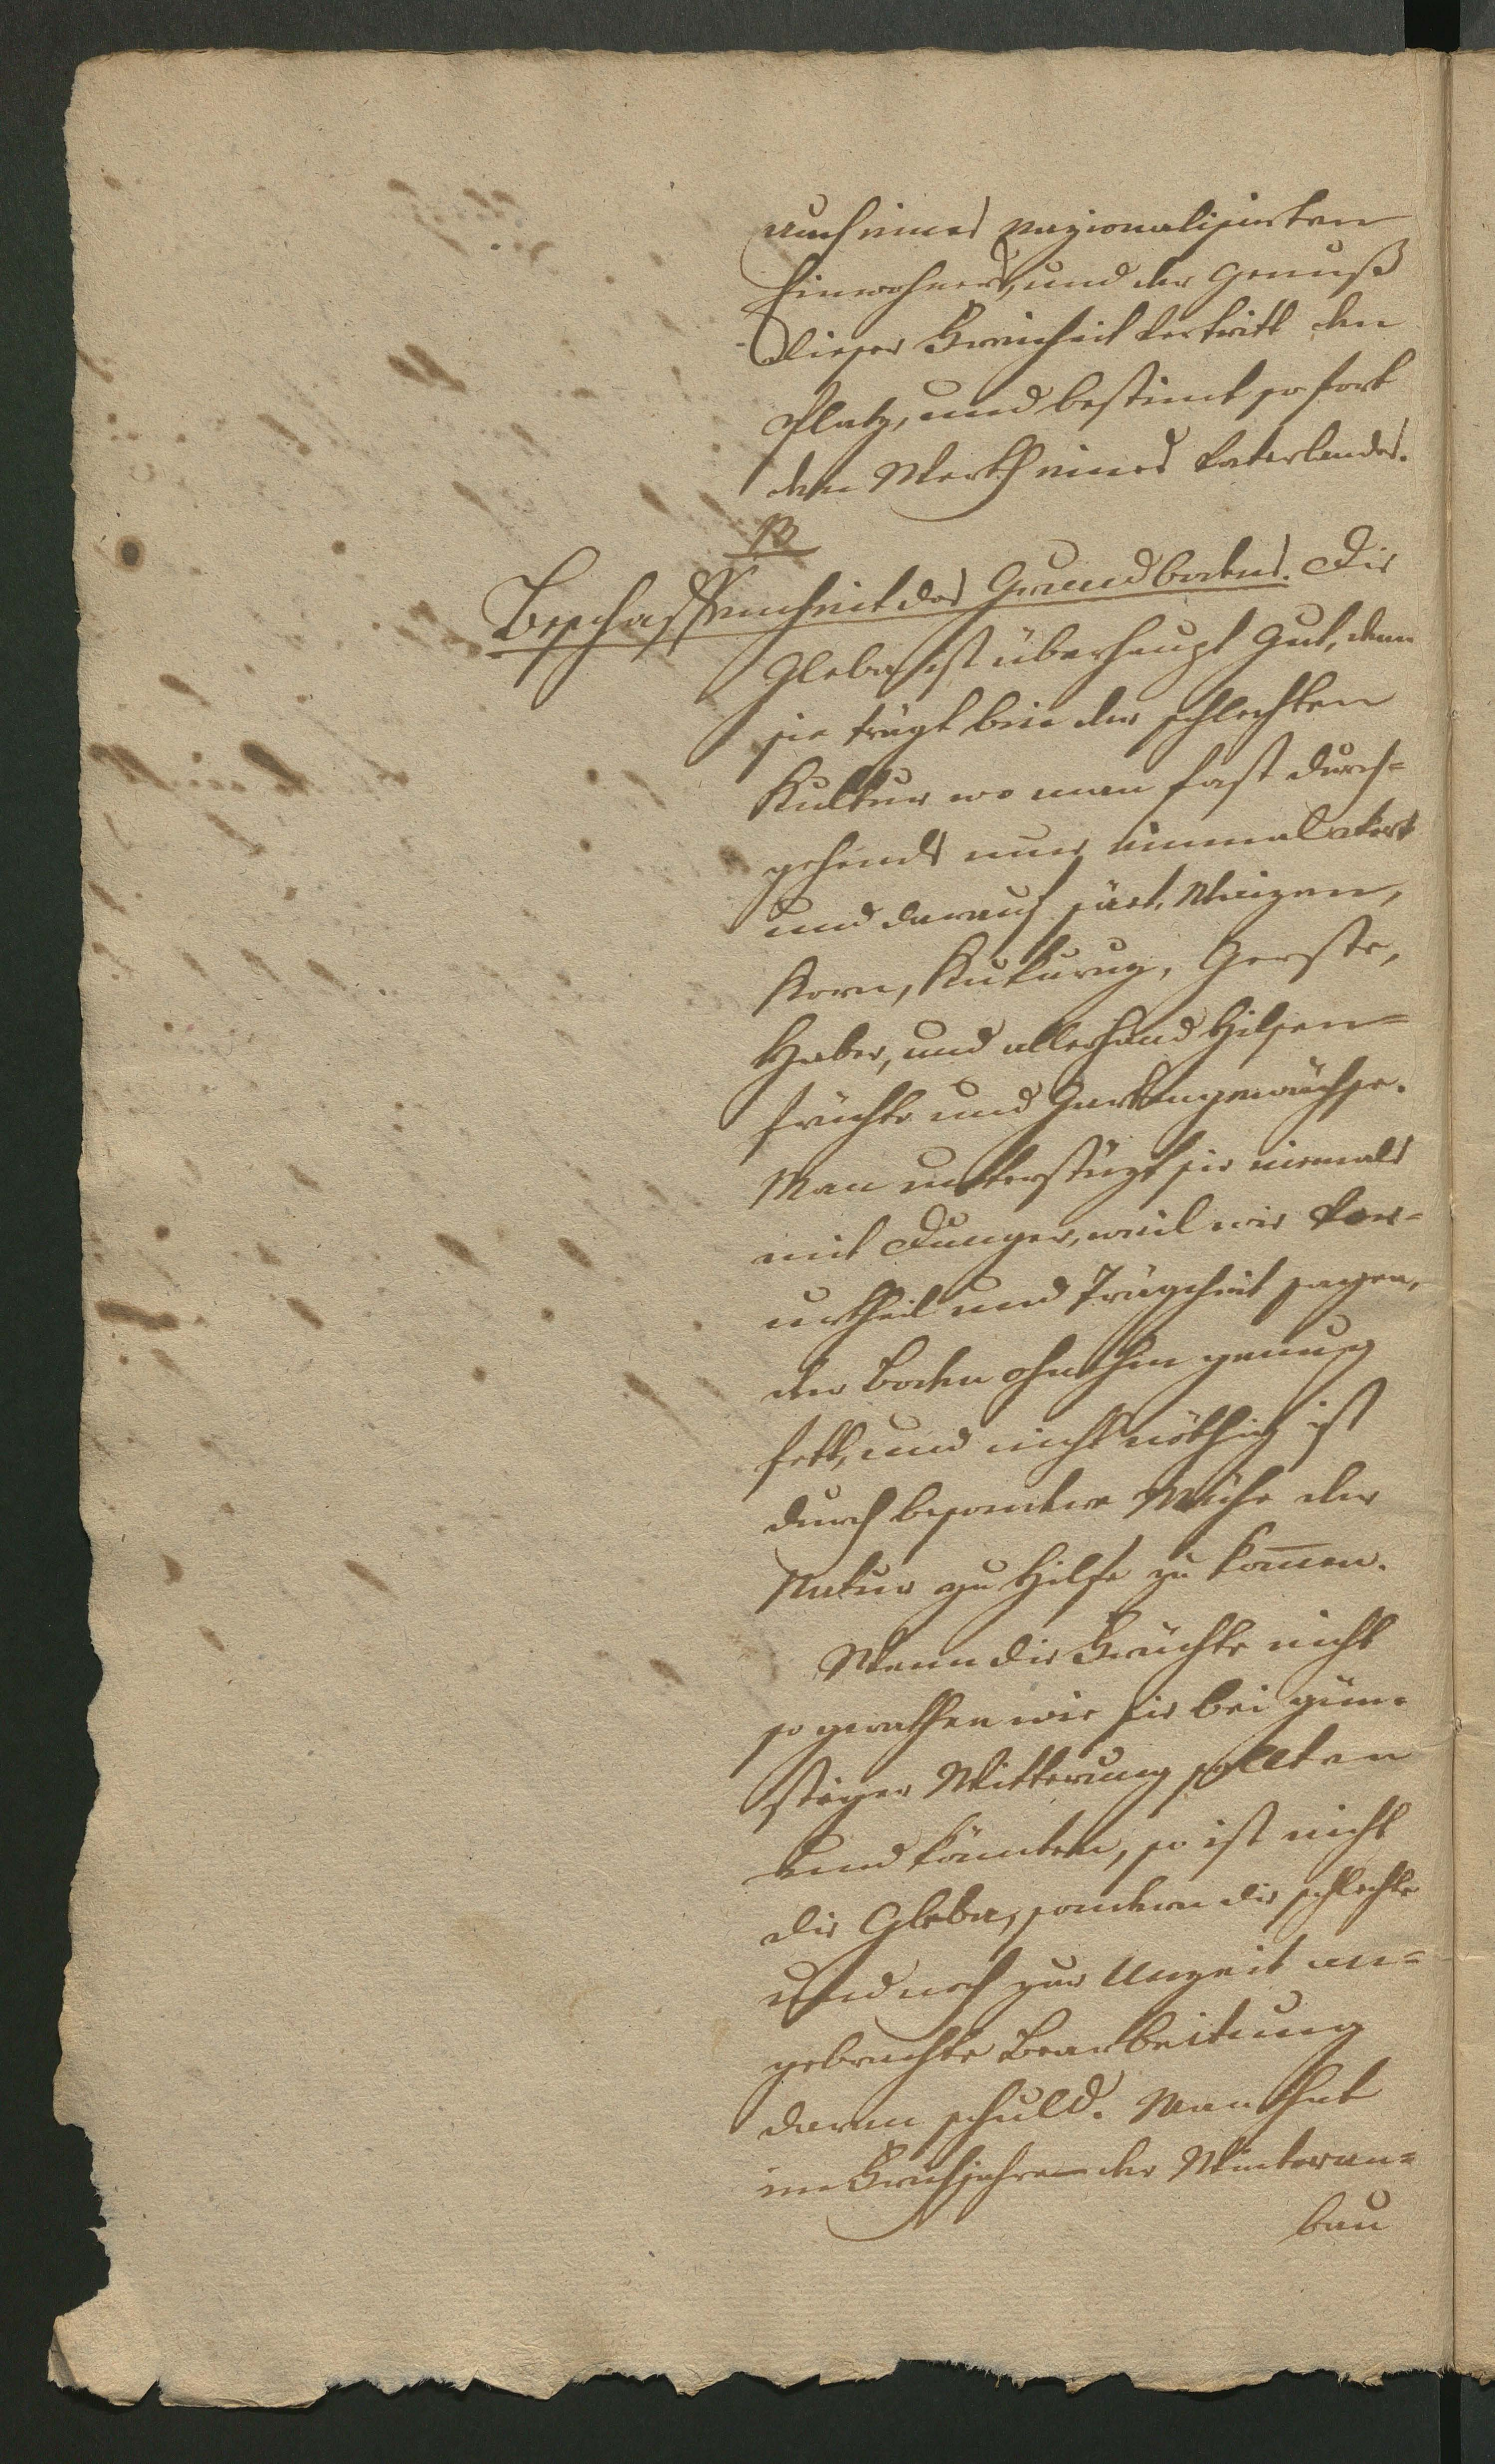 auch eines nazionalisirten
Einwohners, und der Genuß
dieser Freiheit vertritt den
Platz, und bestimt sofort
den Werth eines Vaterlandes.
13
Beschaffenheit des Grundbodens. Die
Gleba ist überhaupt gut, denn
sie trägt bei der schlechten
Kultur wo man fast durch=
gehends nur einmal akert
und darauf säet, Waizen,
Korn, Kukuruz, Gerste,
Haber, und allerhand Hilsen=
früchte und Gartengewächse.
Man unterstüzt sie niemals
mit Dunger, weil wie Vor=
urtheil und Trägheit sagen,
der Boden ohnehin genug
fett, und nicht nöthig ist
durch besondere Mühe der
Natur zu Hilfe zu kom̄en.
Wenn die Früchte nicht
so gerathen wie sie bei gün=
stiger Witterung sollten
und könnten, so ist nicht
die Gleba, sondern die schlechte
und noch zur Unzeit an=
gebrachte Bearbeitung
daran schuld. Man hat
im Frühjahre der Winteran=
bau